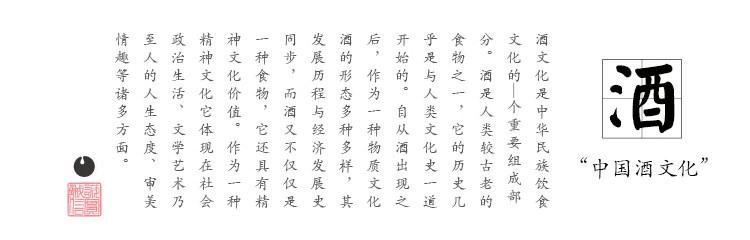 酒
“中国酒文化”
酒文化是中华民族饮食
文化的一个重要组成部
分。酒是人类较古老的
食物之一，它的历史几
乎是与人类文化史一道
开始的。自从酒出现之
后，作为一种物质文化
酒的形态多种多样，其
发展历程与经济发展史
同步，而酒又不仅仅是
一种食物，它还具有精
神文化价值。作为一种
精神文化它体现在社会
政治生活、文学艺术乃
至人的人生态度、审美
情趣等诸多方面。